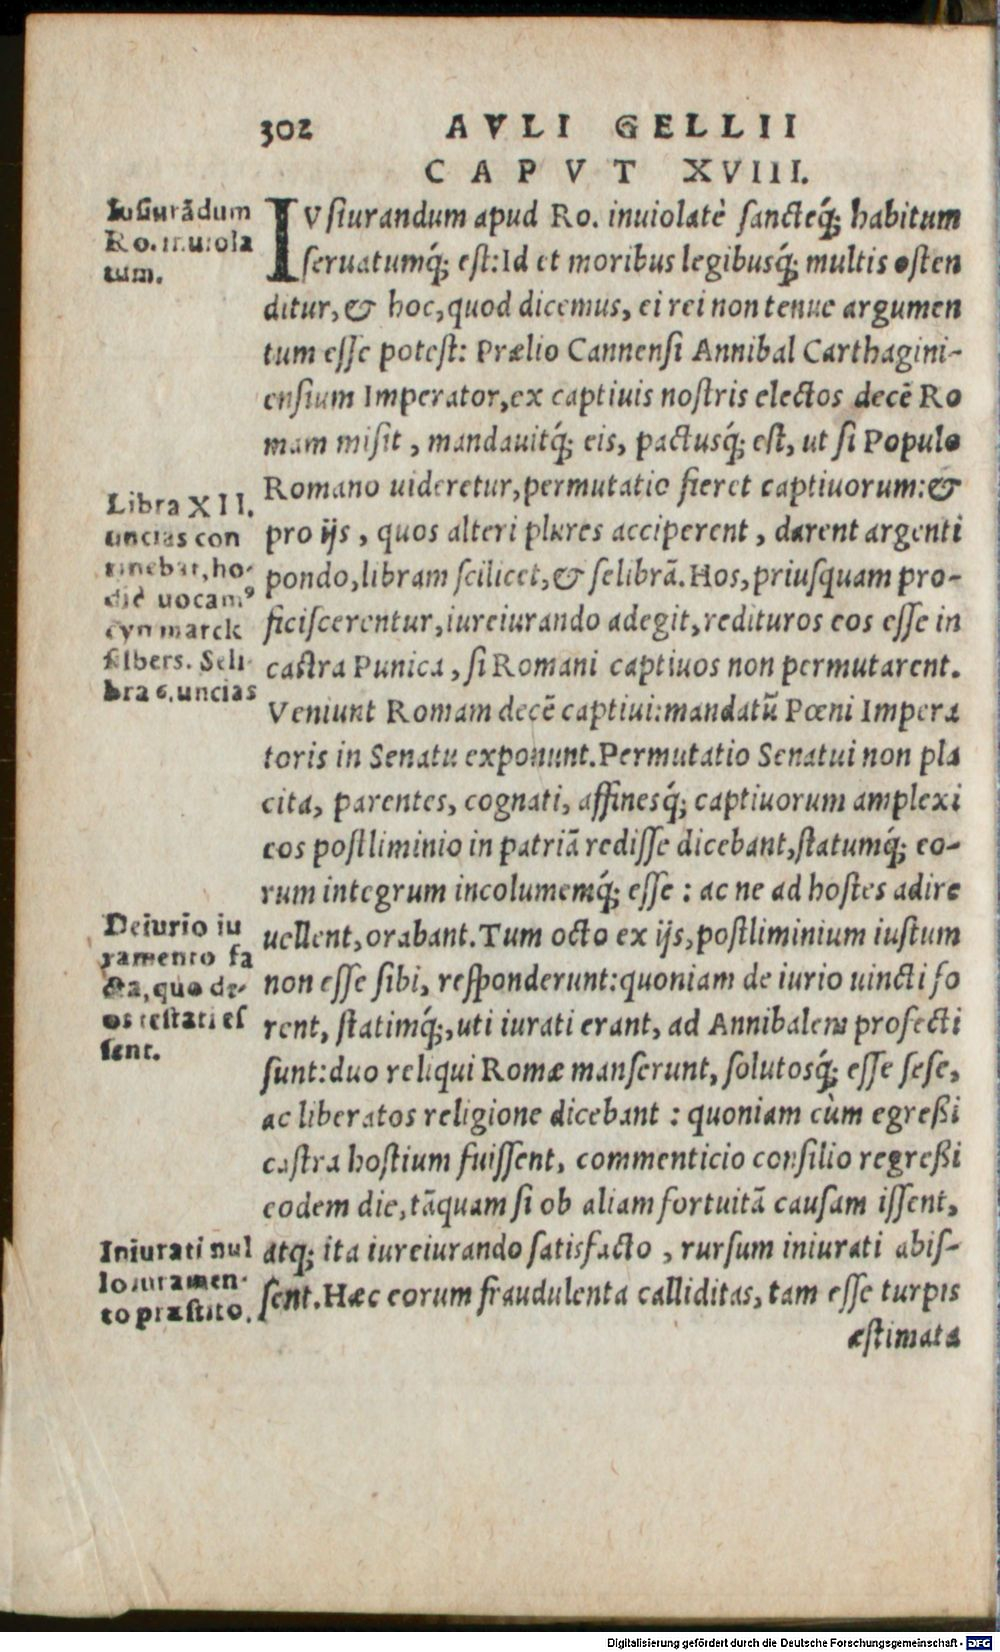 302 AVLI GELLII
CAPVT XVIII.
Iusiurādum
Ro. inuiola
tum.
IVsiurandum apud Ro. inuiolatè sancteq́; habitum
seruatumq́; est: Id et moribus legibusq́; multis osten
ditur, & hoc, quod dicemus, ei rei non tenue argumen
tum esse potest: Prælio Cannensi Annibal Carthagini-
ensium Imperator, ex captiuis nostris electos decē Ro
mam misit, mandauitq́; eis, pactusq́; est, ut si Populo
Romano uideretur, permutatio fieret captiuorum: &
pro ijs, quos alteri plures acciperent, darent argenti
pondo, libram scilicet, & selibrā. Hos, priusquam pro-
ficiscerentur, iureiurando adegit, redituros eos esse in
castra Punica, si Romani captiuos non permutarent.
Veniunt Romam decē captiui: mandatū Pœni Impera
toris in Senatu exponunt. Permutatio Senatui non pla
cita, parentes, cognati, affinesq́; captiuorum amplexi
eos postliminio in patriā redisse dicebant, statumq́; eo-
rum integrum incolumemq́; esse: ac ne ad hostes adire
uellent, orabant. Tum octo ex ijs, postliminium iustum
non esse sibi, responderunt: quoniam de iurio uincti fo
rent, statimq́;, uti iurati erant, ad Annibalem profecti
sunt: duo reliqui Romæ manserunt, solutosq́; esse sese,
ac liberatos religione dicebant: quoniam cùm egreßi
castra hostium fuissent, commenticio consilio regreßi
eodem die, tāquam si ob aliam fortuitā causam issent,
atq; ita iureiurando satisfacto, rursum iniurati abis-
sent. Hæc eorum fraudulenta calliditas, tam esse turpis
æstimata
Libra XII.
uncias con
tinebat, ho-
die uocamꝰ
eyn marck
silbers. Seli-
bra 6. uncias
Deiurio iu
ramento fa
cta, quo de-
os testati es
sent.
Iniurati nul
lo iuramen-
to præstito.
Digitalisierung gefördert durch die Deutsche Forschungsgemeinschaft - DFG